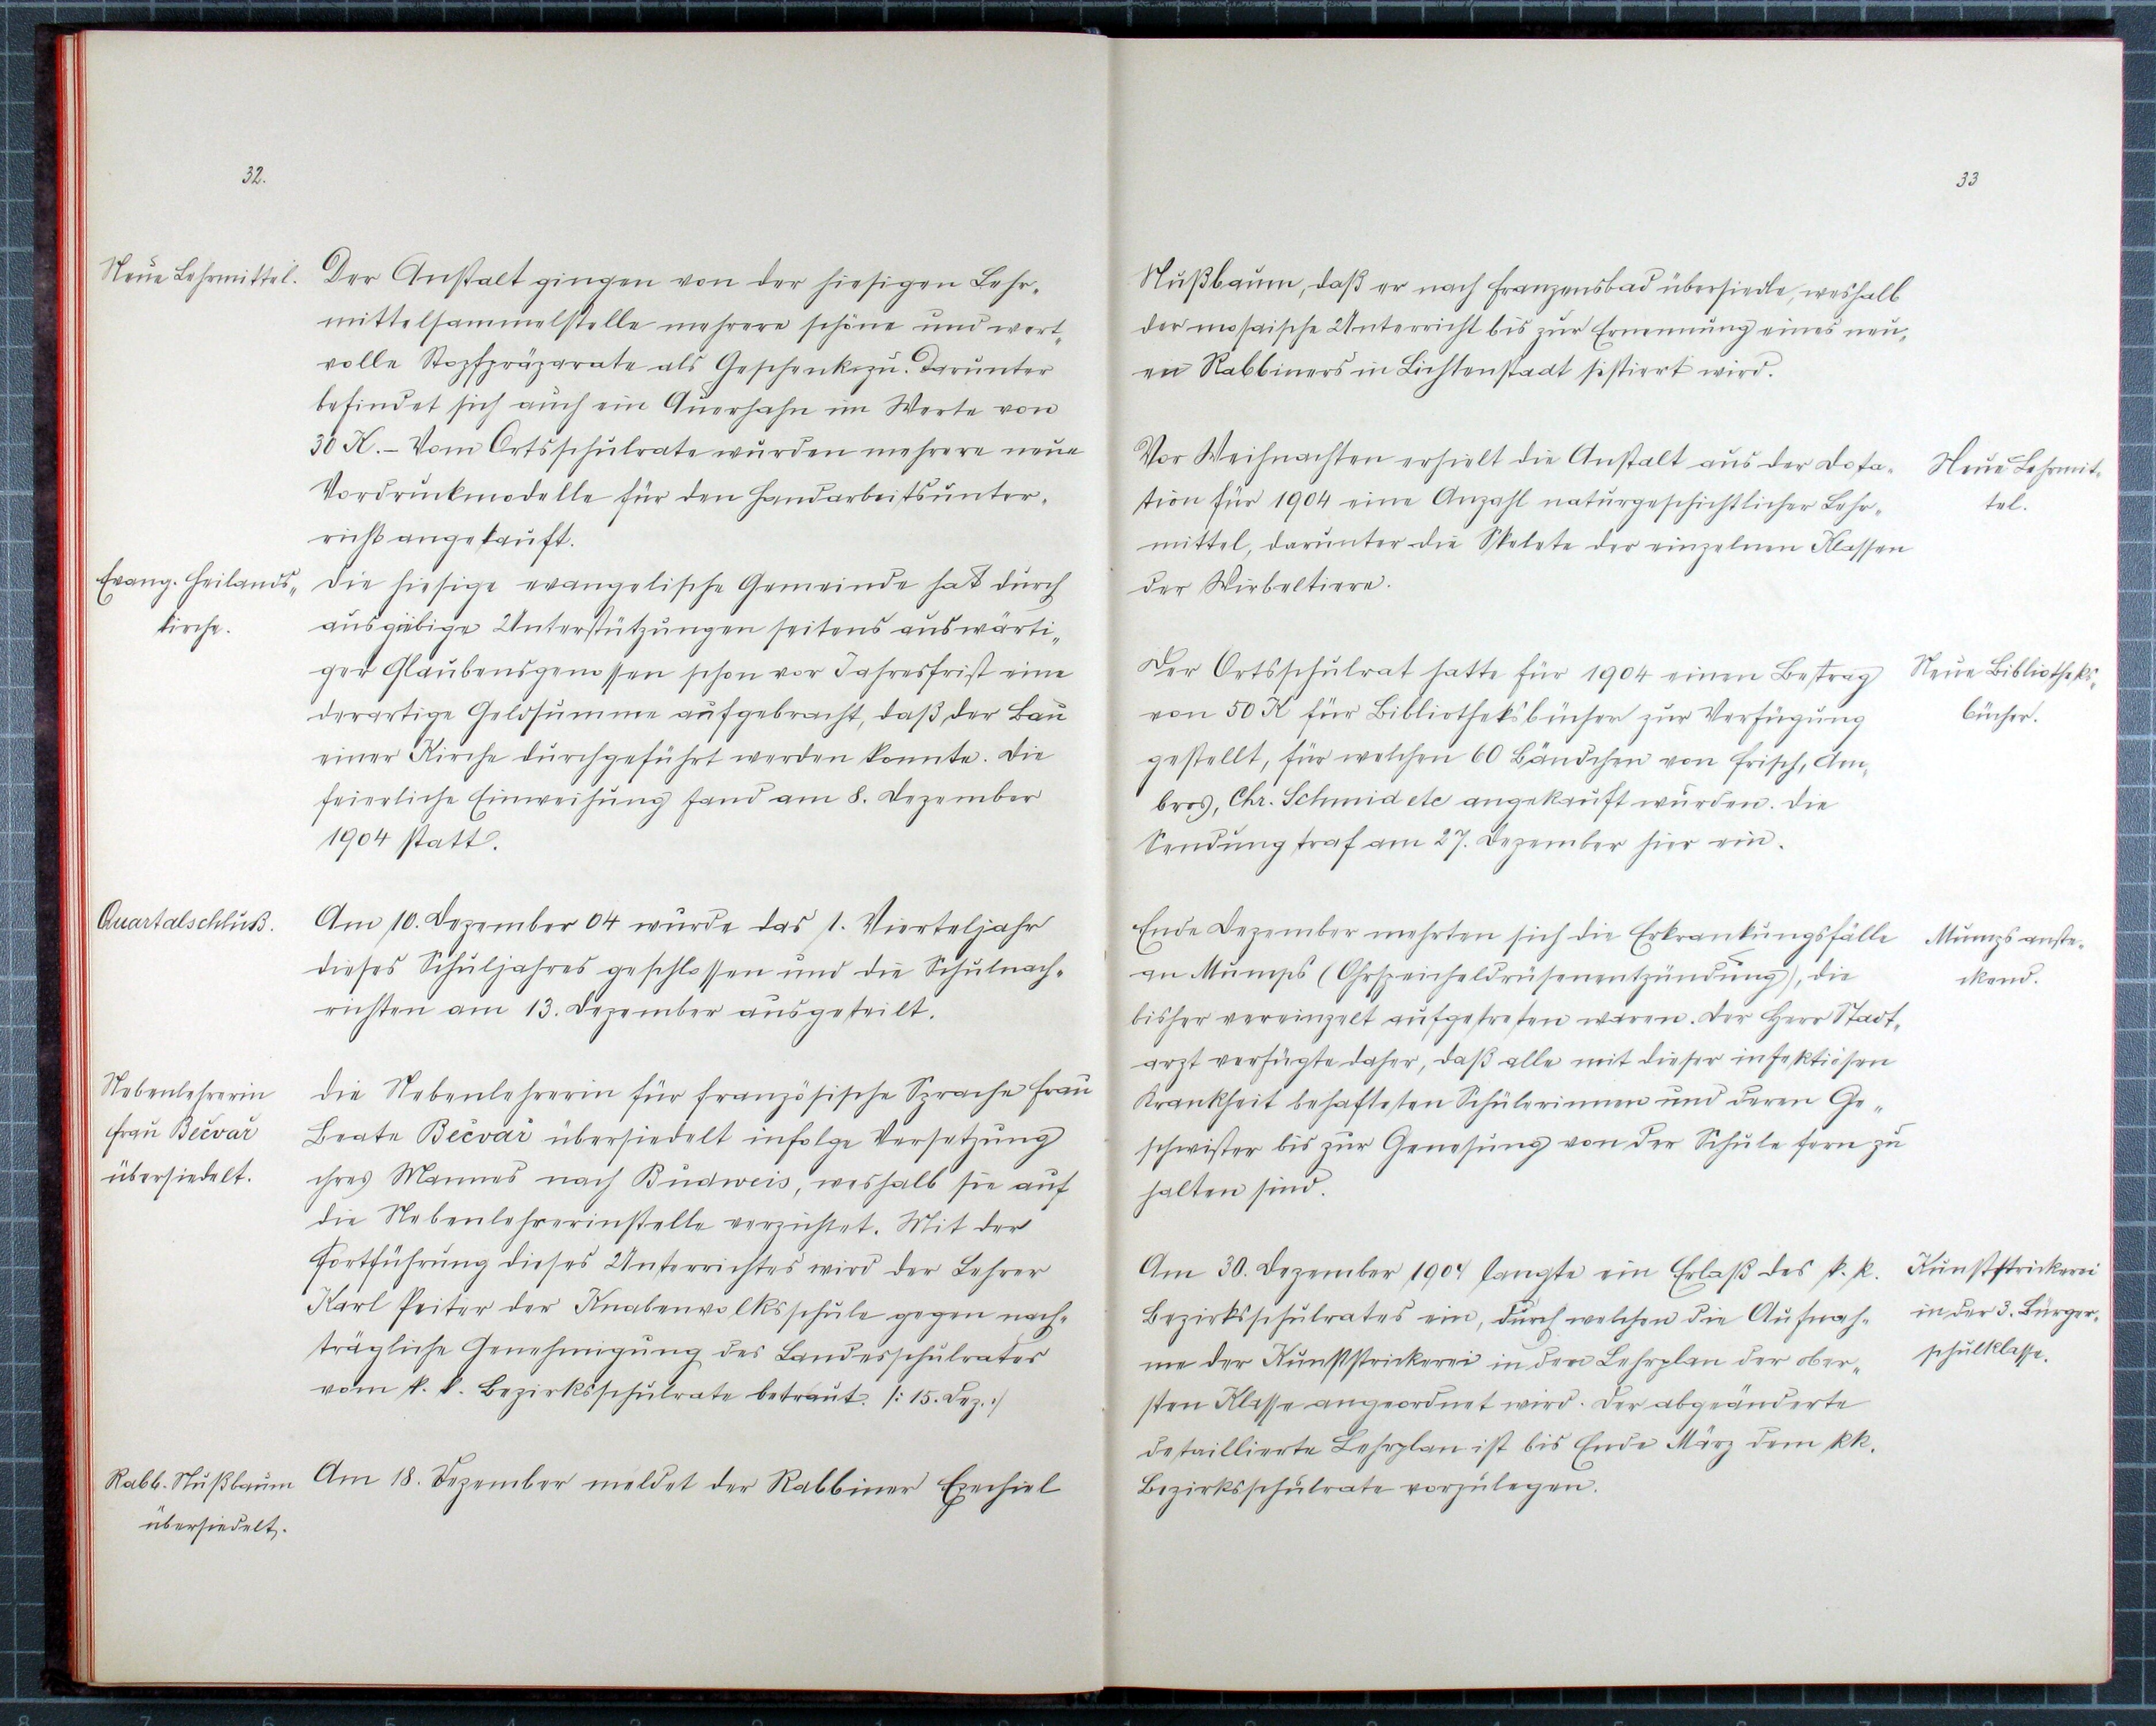 32.
Neue Lehrmittel.
Der Anstalt gingen von der hiesigen Lehr-
mittelsammelstelle mehrere schöne und wert-
volle Stopfpräparate als Geschenke zu. Darunter
befindet sich auch ein Auerhahn im Werte von
30 K. – Vom Ortsschulrate wurden mehrere neue
Vordruckmodelle für den Handarbeitsunter-
richt angekauft.
Evang. Heilands-
kirche.
Die hiesige evangelische Gemeinde hat durch
ausgiebige Unterstützungen seitens auswärti-
ger Glaubensgenossen schon vor Jahresfrist eine
derartige Geldsumme aufgebracht, daß der Bau
einer Kirche durchgeführt werden konnte. Die
feierliche Einweihung fand am 8. Dezember
1904 statt.
Quartalschluß.
Am 10. Dezember 04 wurde das 1. Vierteljahr
dieses Schuljahres geschlossen und die Schulnach-
richten am 13. Dezember ausgeteilt.
Nebenlehrerin
Frau Bečvář
übersiedelt.
Die Nebenlehrerin für französische Sprache Frau
Beate Bečvář übersiedelt infolge Versetzung
ihres Mannes nach Budweis, weshalb sie auf
die Nebenlehrerinstelle verzichtet. Mit der
Fortführung dieses Unterrichtes wird der Lehrer
Karl Peiter der Knabenvolksschule gegen nach-
trägliche Genehmigung des Landesschulrates
vom k. k. Bezirksschulrate betraut. /: 15. Dez. :/
Rabb. Nußbaum
übersiedelt.
Am 18. Dezember meldet der Rabbiner Ezechiel
33
Nußbaum, daß er nach Franzensbad übersiedle, weshalb
der mosaische Unterricht bis zur Ernennung eines neu-
en Rabbiners in Lichtenstadt sistiert wird.
Vor Weihnachten erhielt die Anstalt aus der Dota-
tion für 1904 eine Anzahl naturgeschichtlicher Lehr-
mittel, darunter die Skelete der einzelnen Klassen
der Wirbeltiere.
Neue Lehrmit-
tel.
Der Ortsschulrat hatte für 1904 einen Betrag
von 50 K für Bibliotheksbücher zur Verfügung
gestellt, für welchen 60 Bändchen von Frisch, Am-
bros, Chr. Schmid etc angekauft wurden. Die
Sendung traf am 27. Dezember hier ein.
Neue Bibliotheks-
bücher.
Ende Dezember mehrten sich die Erkrankungsfälle
an Mumps (Ohrspeicheldrüsenentzündung), die
bisher vereinzelt aufgetreten waren. Der Herr Stadt-
arzt verfügte daher, daß alle mit dieser infektiösen
Krankheit behafteten Schülerinnen und deren Ge-
schwister bis zur Genesung von der Schule fern zu
halten sind.
Mumps anste-
ckend.
Am 30. Dezember 1904 langte ein Erlaß des k. k.
Bezirksschulrates ein, durch welchen die Aufnah-
me der Kunststrickerei in den Lehrplan der ober-
sten Klasse angeordnet wird. Der abgeänderte
detaillierte Lehrplan ist bis Ende März dem kk.
Bezirksschulrate vorzulegen.
Kunststrickerei
in der 3. Bürger-
schulklasse.